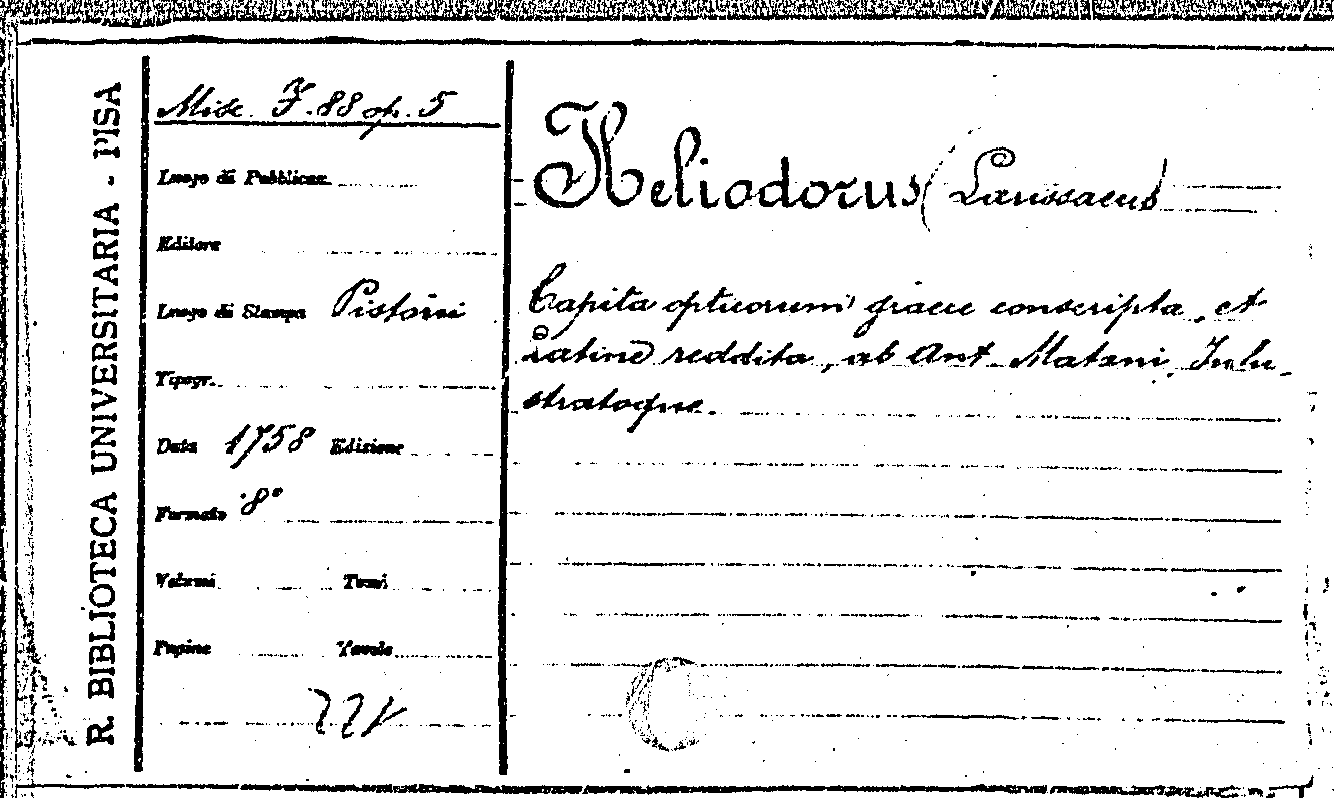 R. BIBLIOTECA UNIVERSITARIA - PISA
Misc. F. 88 op. 5
Luogo di Pubblicaz.
Editore
Luogo di Stampa Pistorii
Tipogr.
Data 1758 Edizione
Formato 8°
Volumi Tomi
Pagine Tavole
Heliodorus (Larissaeus)
Capita opticorum graece conscripta, et
Latine reddita, ab Ant Matani, Inlu-
stratoque.